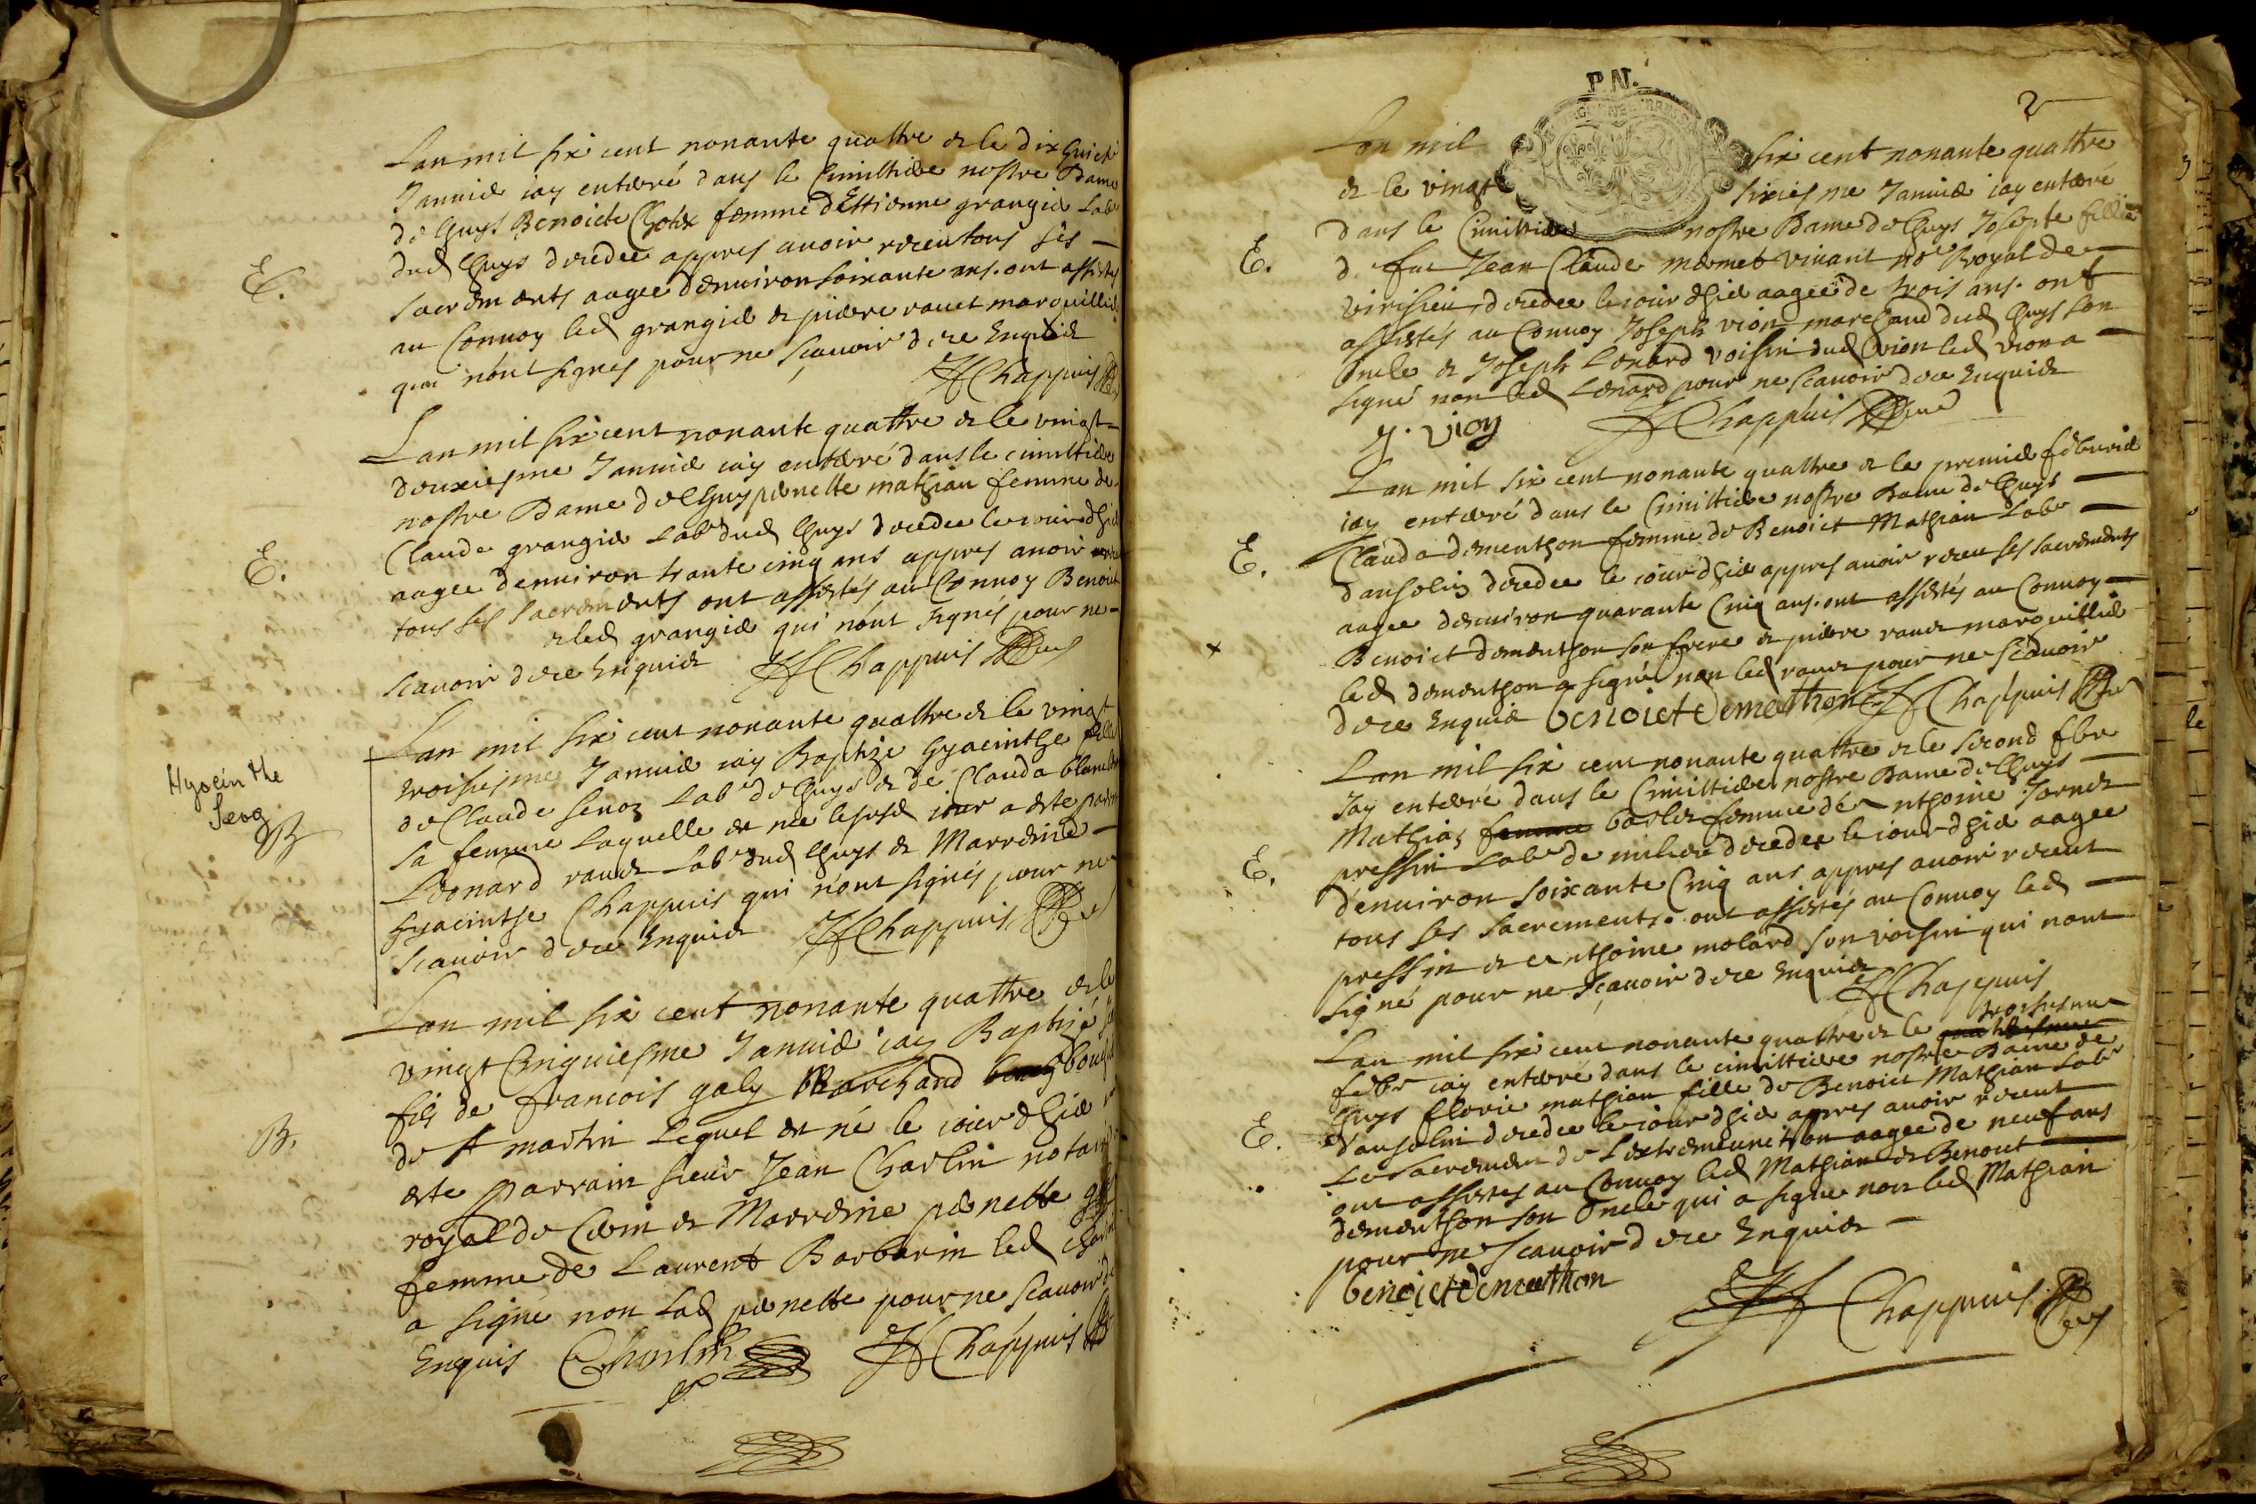 Lan mil six cent nonante quattre & le dix huict
Januier iay enterré dans le Cimittiere nostre Dame
de Chuys Benoicte femme dEttienne grangier Labr
dud Chuys decedee appres auoir receu tous ses
E.
sacrements aagee denuiron soixante ans. ont assistes
au Conuoy led grangier & pierre rauet marguillier
qui nont signes pour ne scauoir de ce Enquis
Chappuis
Lan mil six cent nonante quattre & le vingt
deuxiesme Januier iay enterré dans le cimittiere
nostre Dame de Chuys pernette mathian femme de
Claude grangier Labr dud Chuys decedee le iour dhier
E.
aagee denuiron trante cinq ans appres auoir
tous ses sacrements ont assistés au Conuoy Benoict
& led grangier qui nont signés pour ne
scauoir de ce Enquis Chappuis
Lan mil six cent nonante quattre & le vingt
troisiesme Januier iay Baptizé hyacinthe fille
Hyacinthe
de Claude Labr de Chuys & de Clauda
sa femme laquelle est nee le iour a esté
B
Leonard Labr dud Chuys & Marreine
hyacinthe Chappuis qui nont signés pour ne
scauoir de ce Enquis Chappuis
Lan mil six cent nonante quattre & le
vingt Cinquiesme Januier iay Baptizé
fils de francois galy Marchand
B.
de St martin lequel est né le iour dhier
este parrain sieur Jean Charlin notaire
royal de & Marreine pernette
femme de Laurent Barbarin led
a signé non lad pernette pour ne scauoir de
Enquis Charlin Chappuis
P.N.
2
Lan mil six cent nonante quattre
& le vingt sixiesme Januier iay enterré
dans le Cimittiere nostre Dame de Chuys Josepte fille
E.
de feu Jean Claude mermet viuant Royal de
virisieu decedee le iour dhier aagee de trois ans. ont
assistés au Conuoy Joseph vion marchand dud Chuys son
Oncle & Joseph Lonard voisin dud vion led vion a
signé non led Lonard pour ne scauoir de ce Enquis
J. vion Chappuis
Lan mil six cent nonante quattre & le premier feburier
iay enterré dans le Cimittiere nostre Dame de Chuys
E.
Clauda dementhon femme de Benoict Mathian Labr
dansolin decedee le iour dhier appres auoir receu ses sacrements
aagee denuiron quarante Cinq ans. ont assistés au Conuoy
Benoict dementhon son frere & pierre rauet marguillier
led dementhon a signé non led rauet pour ne scauoir
de ce Enquis benoict demethon Chappuis
Lan mil six cent nonante quattre & le second fbr
Jay enterré dans le Cimittiere nostre Dame de Chuys
femme femme de Anthoine
E.
pressin Labr de decedee le iour dhier aagee
denuiron soixante Cinq ans appres auoir receut
tous ses sacrements. ont assistés au Conuoy led
pressin & Anthoine molard son voisin qui nont
signé pour ne scauoir de ce Enquis Chappuis
troisiesme
Lan mil six cent nonante quattre & le
febr iay enterré dans le cimittiere nostre Dame de
Chuys florie mathian fille de Benoict Mathian Labr
E.
dansolin decedee le iour dhier appres auoir receut
Le sacrement de Lextremeunction aagee de neuf ans
ont assistes au Conuoy led Mathian & Benoict
dementhon son Oncle qui a signe non led Mathian
pour ne scauoir de ce Enquis
benoict demethon
Chappuis